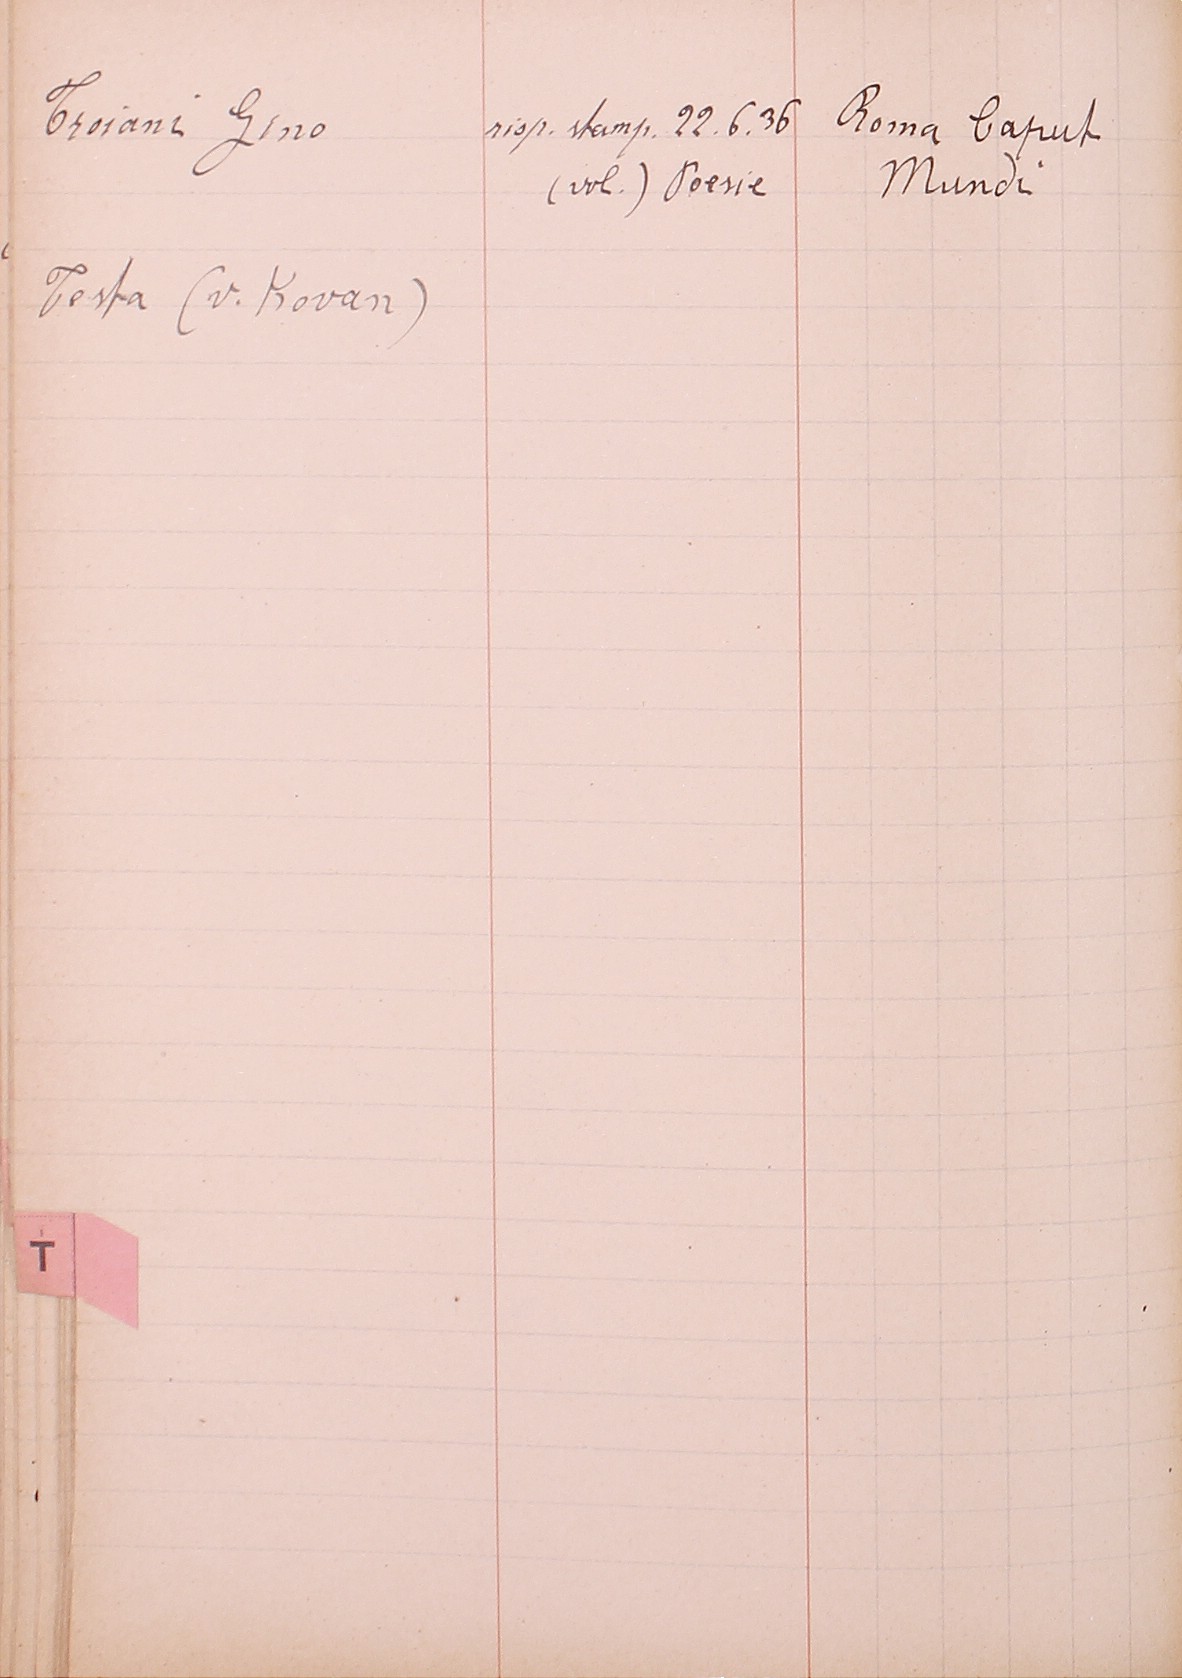 Troiani Gino risp. stamp. 22.6.36 Roma Caput
(vol.) Poesie Mundi
Testa (v. Kovan)
T